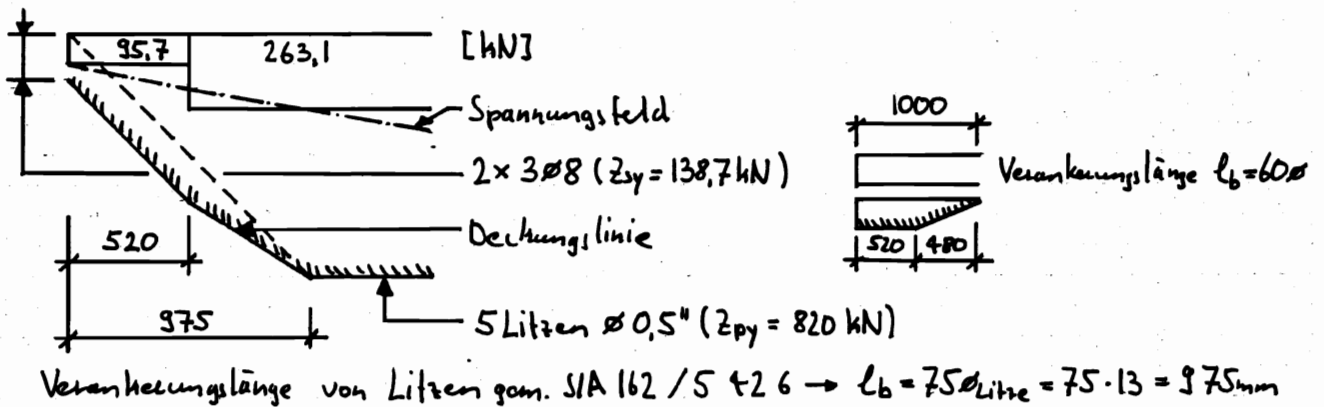 95,7 263,1 [kN]
Spannungsfeld
2 x 3ø8 (Zsy = 138,7 kN)
Deckungslinie
520
975
5 Litzen ø 0,5" (Zpy = 820 kN)
1000
Verankerungslänge lb = 60ø
520 480
Verankerungslänge von Litzen gem. SIA 162 / 5 42 6 → lb = 75øLitze = 75·13 = 975mm